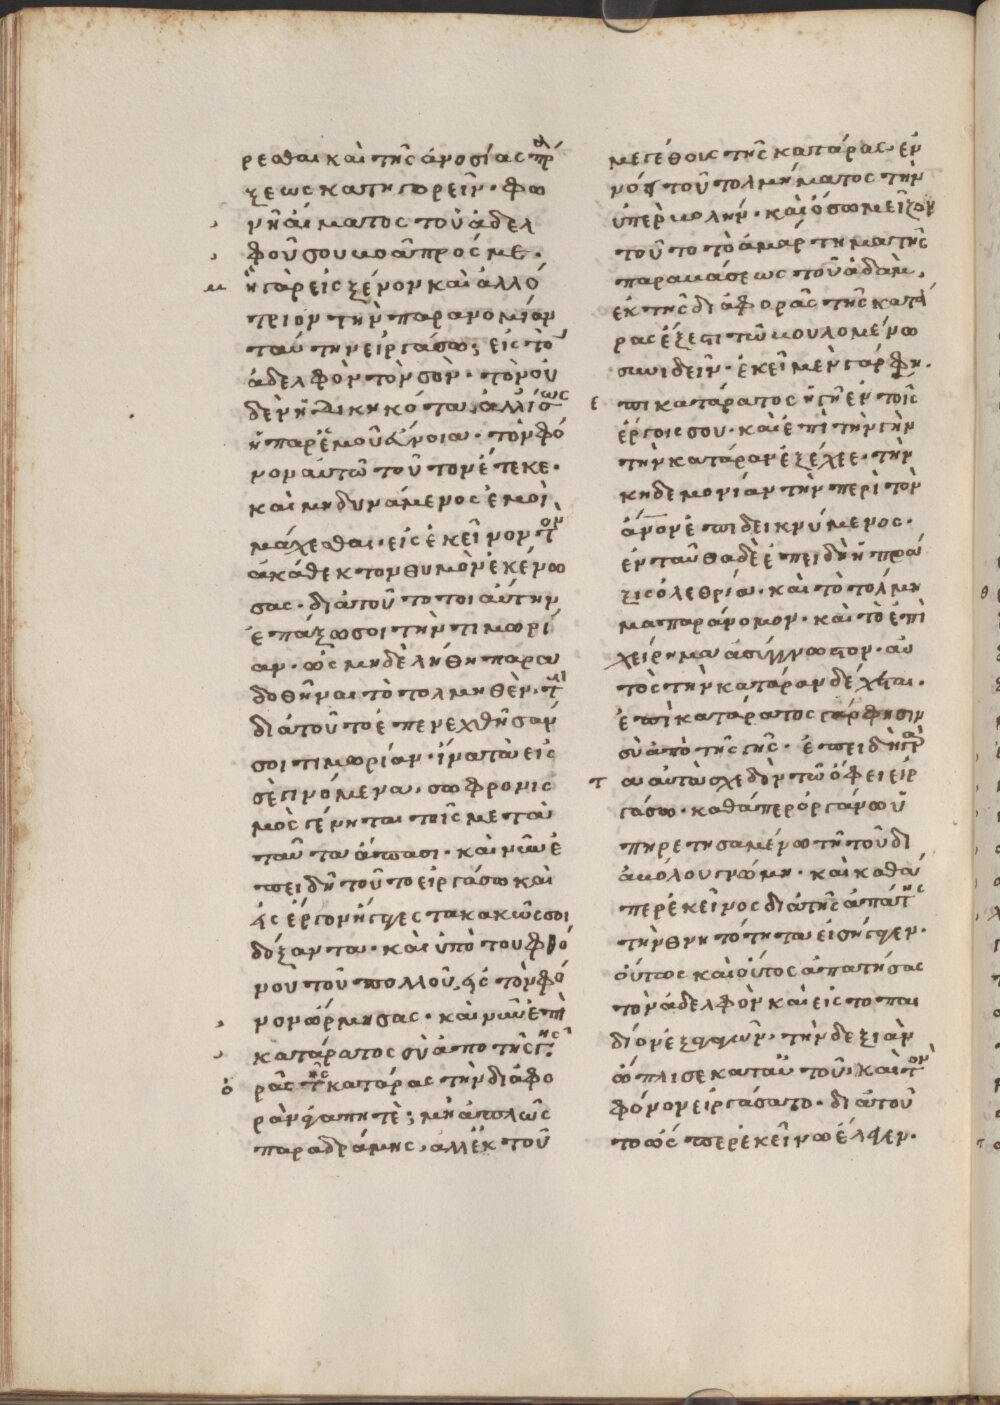 ρεσθαι καὶ τῆς ἀνοσίας πρά
ξεως κατηγορεῖν· φω
νὴ αἵματος τοῦ ἀδελ
φοῦ σου βοᾶ πρός με·
μ ἢ γὰρ εἰς ξένον καὶ ἀλλό
τριον τὴν παρανομίαν
ταύτην εἰργάσω; εἰς τὸν
ἀδελφὸν τὸν σὸν· τὸν οὐ
δὲν ἠδικηκότα· ἀλλ' ἴσως
ἡ παρ' ἐμοῦ εὔνοια· τὸν φό
νον αὐτῶ τοῦτον ἔτεκε·
καὶ μὴ δυνάμενος ἐμοὶ
μάχεσθαι· εἰς ἐκεῖνον τὸν
ἀκάθεκτον θυμὸν ἐκένω
σας· διὰ τοῦτο τοιαύτην
ἐπάξω σοι τὴν τιμωρί
αν· ὡς μηδὲ λήθη παρα
δοθῆναι τὸ τολμηθὲν· καὶ
διὰ τοῦτο ἐπενεχθῆσάν
σοι τιμωρίαν· ἵνα τὰ εἰς
σὲ γινόμενα, σωφρονισ
μὸς γένηται τοῖς μετὰ
ταῦτα ἅπασι· καὶ νῦν ἐ
πειδὴ τοῦτο εἰργάσω καὶ
εἰς ἔργον ἤγαγες τὰ κακῶς σοι
δόξαντα· καὶ ὑπὸ τοῦ φθό
νου τοῦ πολλοῦ, εἰς τὸν φό
νον ὥρμησας· καὶ νῦν ἐπι
κατάρατος σὺ ἀπὸ τῆς γῆς·
ὁ ρᾶς τῆς κατάρας τὴν διαφο
ρὰν ἀγαπητὲ; μὴ ἁπλῶς
παραδράμης, ἀλλ' ἐκ τοῦ
μεγέθους τῆς κατάρας· ἐν
νόει τοῦ τολμήματος τὴν
ὑπερβολήν· καὶ ὅσω μεῖζον
τοῦτο τὸ ἁμάρτημα τῆς
παραβάσεως τοῦ ἀδὰμ,
ἐκ τῆς διαφορᾶς τῆς κατά
ρας ἔξεστι τῶ βουλομένω
συνιδεῖν· ἐκεῖ μὲν γάρ φη·
ἐ πικατάρατος ἡ γῆ ἐν τοῖς
ἔργοις σου· καὶ ἐπὶ τὴν γῆν
τὴν κατάραν ἐξέχεε· τὴν
κηδεμονίαν τὴν περὶ τὸν
ἄνον ἐπιδεικνύμενος·
ἐνταῦθα δὲ ἐπειδὴ ἡ πρά
ξις ὀλεθρία· καὶ τὸ τόλμη
μα παράνομον· καὶ τὸ ἐπι
χείρημα ἀσύγγνωστον· αὐ
τὸς τὴν κατάραν δέχεται·
ἐπικατάρατος γάρ φησιν
σὺ ἀπὸ τῆς γῆς· ἐπειδὴ γὰρ
τ αυτα σχεδὸν τῶ ὄφει εἰρ
γάσω· καθάπερ ὀργάνω ὑ
πηρετησαμένω τῆ τοῦ δι
αβόλου γνώμη· καὶ καθά
περ ἐκεῖνος διὰ τῆς ἀπάτης
τὴν θνητότητα εἰσήγαγεν·
οὕτως καὶ οὗτος ἀπατήσας
τὸν ἀδελφὸν καὶ εἰς τὸ πε
δίον ἐξαγαγὼν, τὴν δεξιὰν
ὥπλισε κατ' αὐτοῦ· καὶ τὸν
φόνον εἰργάσατο· διὰ τοῦ
το ὥσπερ ἐκείνω ἔλεγεν·